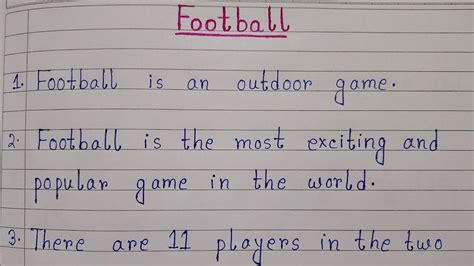 Football
1. Football is an outdoor game.
2. Football is the most exciting and
popular game in the world.
3. There are 11 players in the two